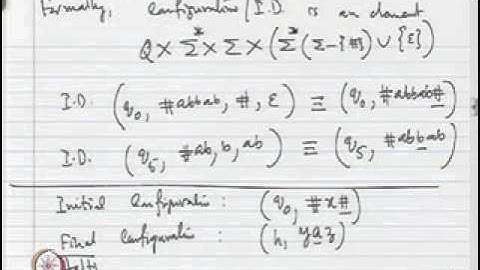 Formally, Configuration / I.D. is an element
Q × Σ* × Σ × (Σ*(Σ-{#}) ∪ {ε})
I.D. (q₀, #abbab, #, ε) ≡ (q₀, #abbab#)
I.D. (q₅, #ab, b, ab) ≡ (q₅, #abbab)
Initial Configuration : (q₀, #x#)
Final Configuration : (h, yaz)